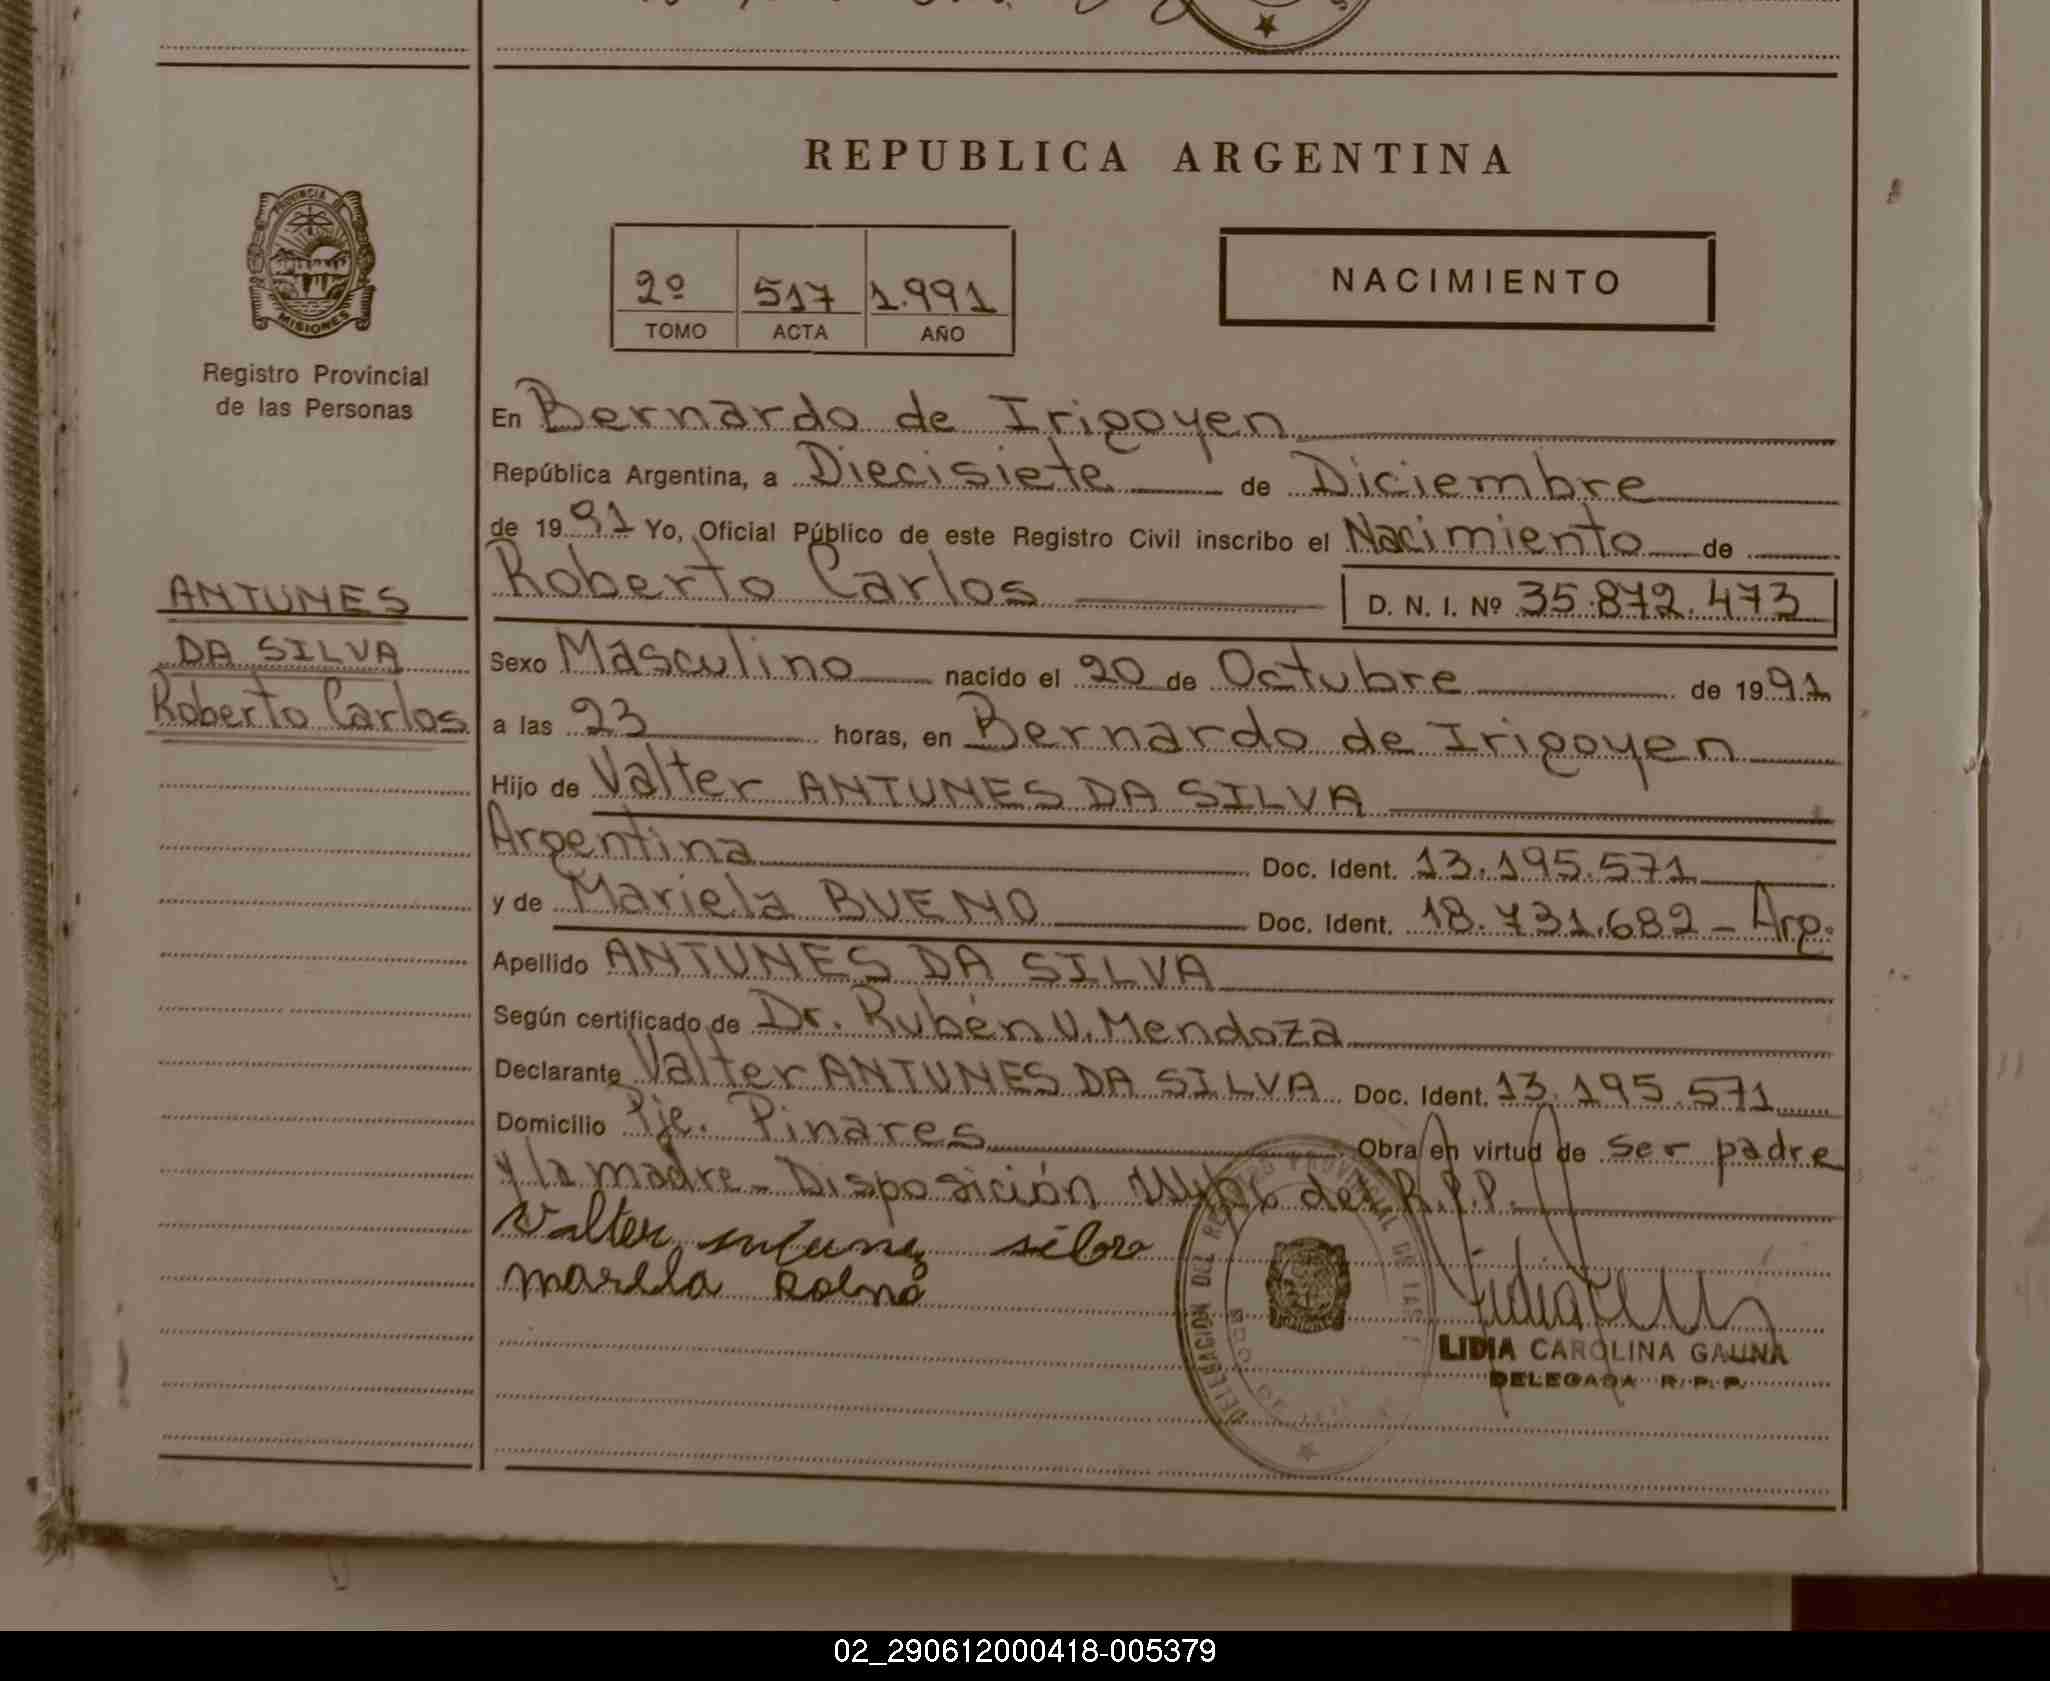 REPUBLICA ARGENTINA
PROVINCIA DE
MISIONES
Registro Provincial
de las Personas
2º 517 1.991
TOMO ACTA AÑO
NACIMIENTO
En Bernardo de Irigoyen
República Argentina, a Diecisiete de Diciembre
de 1991 Yo, Oficial Público de este Registro Civil inscribo el Nacimiento de
Roberto Carlos D. N. I. Nº 35.872.473
ANTUNES
DA SILVA
Roberto Carlos
Sexo Masculino nacido el 20 de Octubre de 1991
a las 23 horas, en Bernardo de Irigoyen
Hijo de Valter ANTUNES DA SILVA
Argentina Doc. Ident. 13.195.571
y de Mariela BUENO Doc. Ident. 18.731.682 - Arg.
Apellido ANTUNES DA SILVA
Según certificado de Dr. Rubén V. Mendoza
Declarante Valter ANTUNES DA SILVA Doc. Ident. 13.195.571
Domicilio Pje. Pinares Obra en virtud de ser padre
y la madre - Disposición del R.P.P.
Valter silva
DELEGACION DEL REGISTRO PROVINCIAL DE LAS
LIDIA CAROLINA GAUNA
DELEGADA R.P.P.
02_290612000418-005379